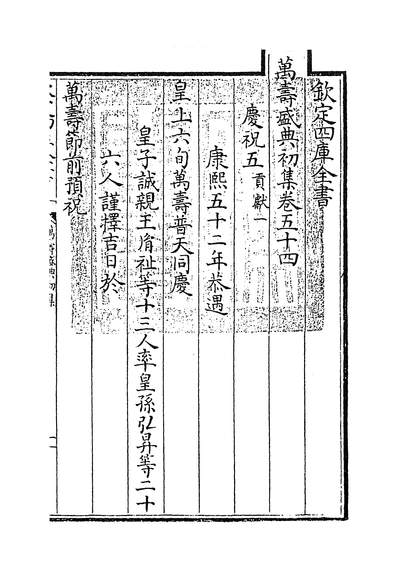 欽定四庫全書
萬壽盛典初集卷五十四
慶祝五貢獻一
康熙五十二年恭遇
皇上六旬萬壽普天同慶
皇子誠親王胤祉等十三人率皇孫弘昇等二十
六人謹擇吉日於
萬壽節前預祝